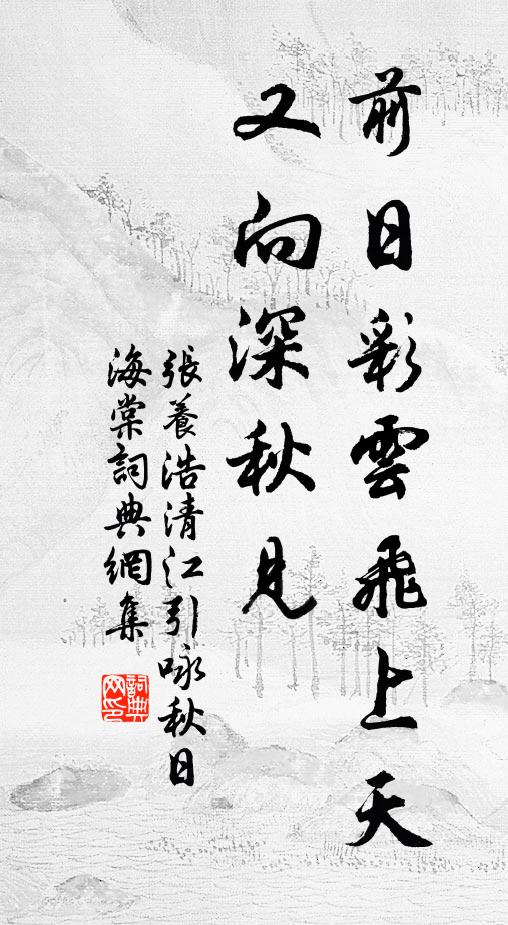 前日彩雲飛上天
又向深秋見
張養浩清江引咏秋日
海棠詞典網集
詞典
网印